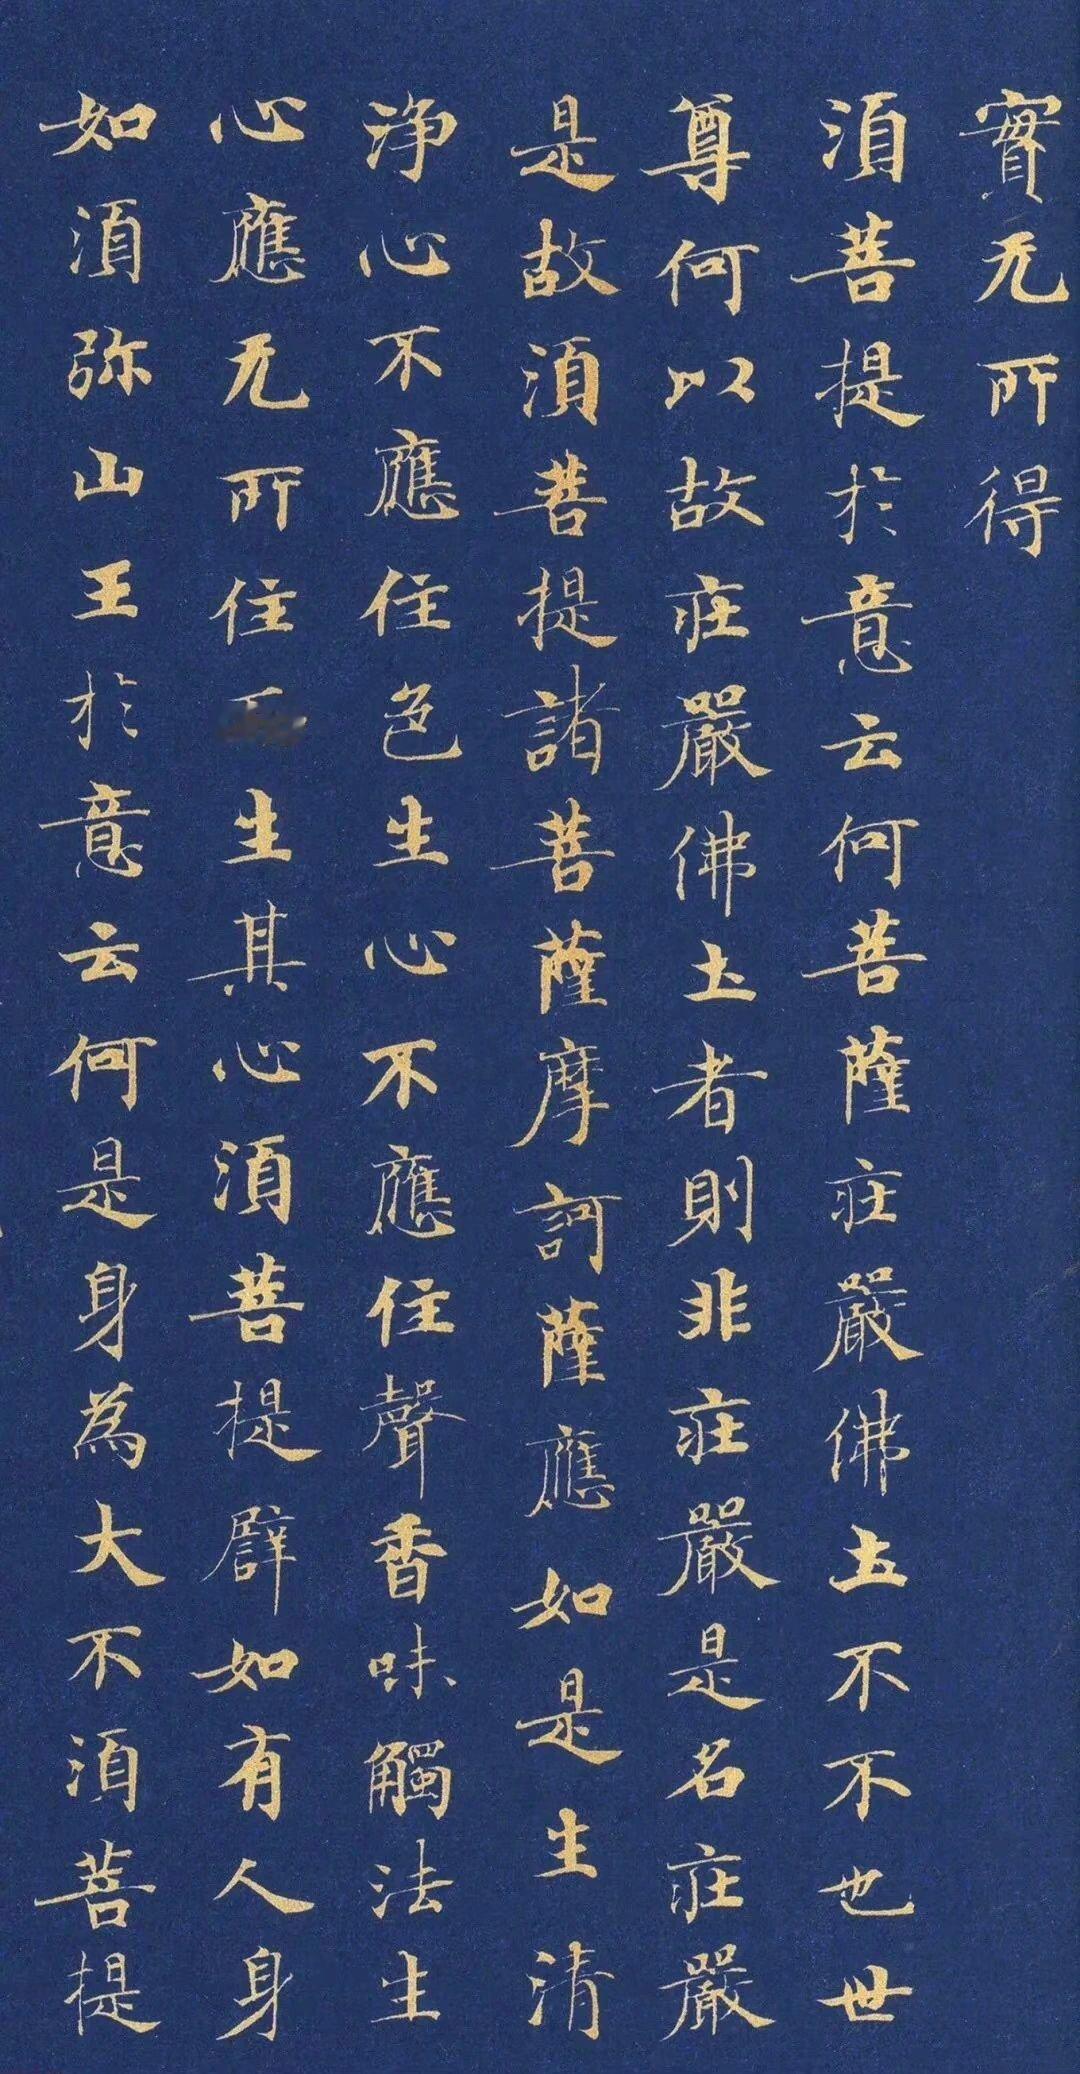 實无所得
湏菩提於意云何菩薩莊嚴佛土不不也世
尊何以故莊嚴佛土者則非莊嚴是名莊嚴
是故湏菩提諸菩薩摩訶薩應如是生清
浄心不應住色生心不應住聲香味觸法生
心應无所住生其心湏菩提譬如有人身
如湏弥山王於意云何是身為大不湏菩提